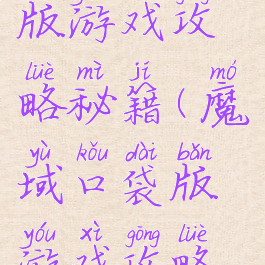 版游戏攻
lüè mì jí mó
略秘籍(魔
yù kǒu dài bǎn
域口袋版
yóu xì gōng lüè
游戏攻略